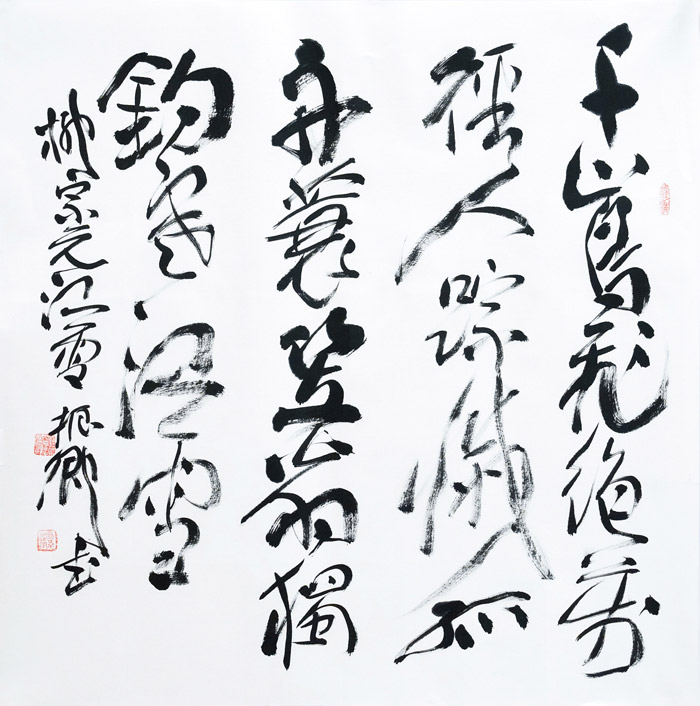 千山鳥飛絕萬
徑人踪滅孤
舟蓑笠翁獨
釣寒江雪
柳宗元江雪 振卿书